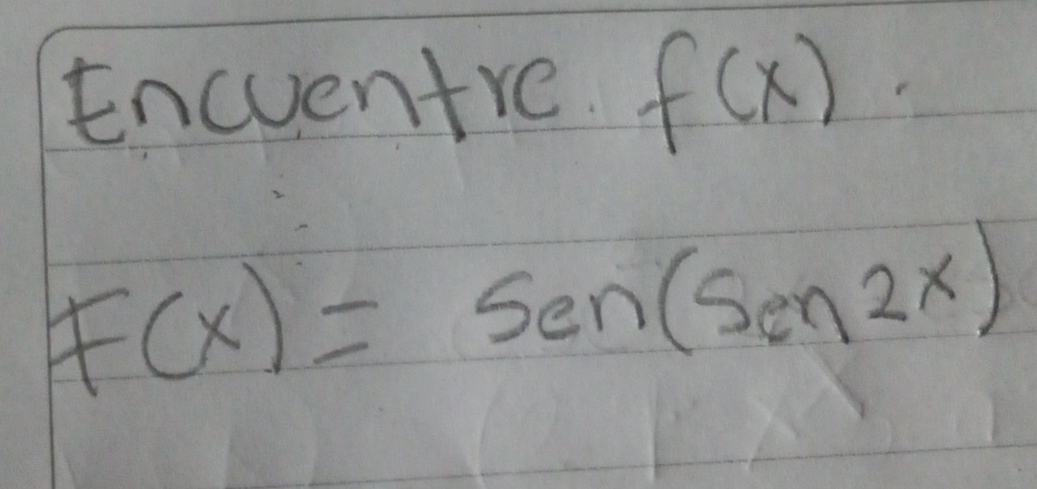 Encuentre f(x).
F(x) = Sen(Sen 2x)